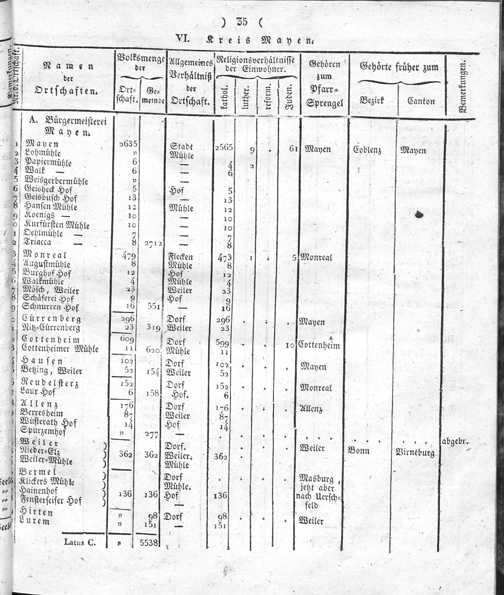 ( 35 )
VI. Kreis Mayen.
Namen der Ortschaften. | Volksmenge der Ortschaft. | Gemeinde | Allgemeines Verhältniß der Ortschaft. | Religionsverhältnisse der Einwohner. kathol. | luther. | reform. | Juden. | Gehören zum Pfarr-Sprengel | Gehörte früher zum Bezirk | Canton | Bemerkungen.
A. Bürgermeisterei Mayen.
Mayen 2635 Stadt 2565 9 . 61 Mayen Coblenz Mayen
Lohmühle 6 Mühle
Papiermühle 6 — 4 2
Walk — 6 — 6
Weisgerbermühle „
Geisheck Hof 5 Hof 5
Geisbusch Hof 13 — 13
Hansen Mühle 12 Mühle 12
Koenigs — 10 — 10
Kurfürsten Mühle 9 — 9
Oehlmühle — 7 — 7
Triacca — 8 2712 — 8
Monreal 479 Flecken 473 1 . 5 Monreal
Augustmühle 8 Mühle 8
Burghof Hof 12 Hof 12
Walkmühle 4 Mühle 4
Mösch, Weiler 23 Weiler 23
Schäferei Hof 9 Hof 9
Schnurren Hof 16 551 — 16
Cürrenberg 296 Dorf 296 . . . Mayen
Nitz-Cürrenberg 23 319 Weiler 23
Cottenheim 609 Dorf 599 . . 10 Cottenheim
Cottenheimer Mühle 11 620 Mühle 11
Hausen 102 Dorf 102 . . . Mayen
Betzing, Weiler 52 154 Weiler 52
Reudelsterz 152 Dorf 152 . . . Monreal
Laur Hof 6 158 Hof. 6
Allenz 176 Dorf 176 . . . Allenz
Berresheim 87 Weiler 87
Wüsterath Hof 14 Hof 14
Spurzemhof „ 277 abgebr.
Weiler Dorf.
Nieder-Elz 362 362 Weiler, 362 . . . Weiler Bonn Virneburg
Weiler-Mühle Mühle
Bermel Dorf Masburg,
Kückers Mühle Mühle. jetzt aber
Hainenhof 136 136 Hof 136 nach Uersch-
Fensterseifer Hof — feld
Hirten „ 98 Dorf 98
Luxem „ 151 — 151 . . . Weiler
Latus C. „ 5538